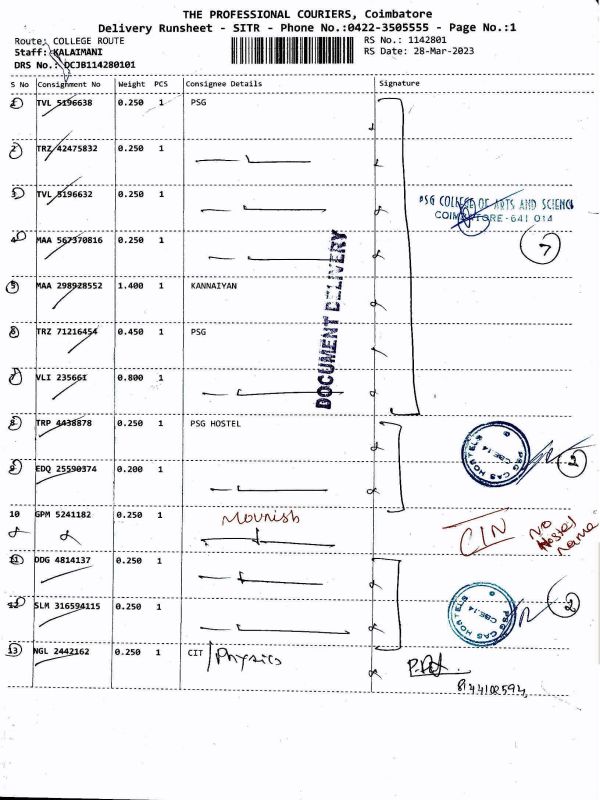 THE PROFESSIONAL COURIERS, Coimbatore
Delivery Runsheet - SITR - Phone No.:0422-3505555 - Page No.:1
Route: COLLEGE ROUTE
RS No.: 1142801
Staff: KALAIMANI
RS Date: 28-Mar-2023
DRS No.: DCJB114280101
S No Consignment No Weight PCS Consignee Details Signature
1 TVL 5196638 0.250 1 PSG
2 TRZ 42475832 0.250 1
3 TVL 5196632 0.250 1
PSG COLLEGE OF ARTS AND SCIENCE
COIMBATORE-641 014
4 MAA 567370816 0.250 1
7
DOCUMENT DELIVERY
5 MAA 298928552 1.400 1 KANNAIYAN
6 TRZ 71216454 0.450 1 PSG
7 VLI 235661 0.800 1
8 TRP 4438878 0.250 1 PSG HOSTEL
PSG CAS HOSTELS
CBE-14
2
9 EDQ 25590374 0.200 1
10 GPM 5241182 0.250 1 Mournish
CIN
NO
Hostel
name
11 DDG 4814137 0.250 1
12 SLM 316594115 0.250 1
PSG CAS HOSTELS
CBE-14
2
13 NGL 2442162 0.250 1 CIT / Physics